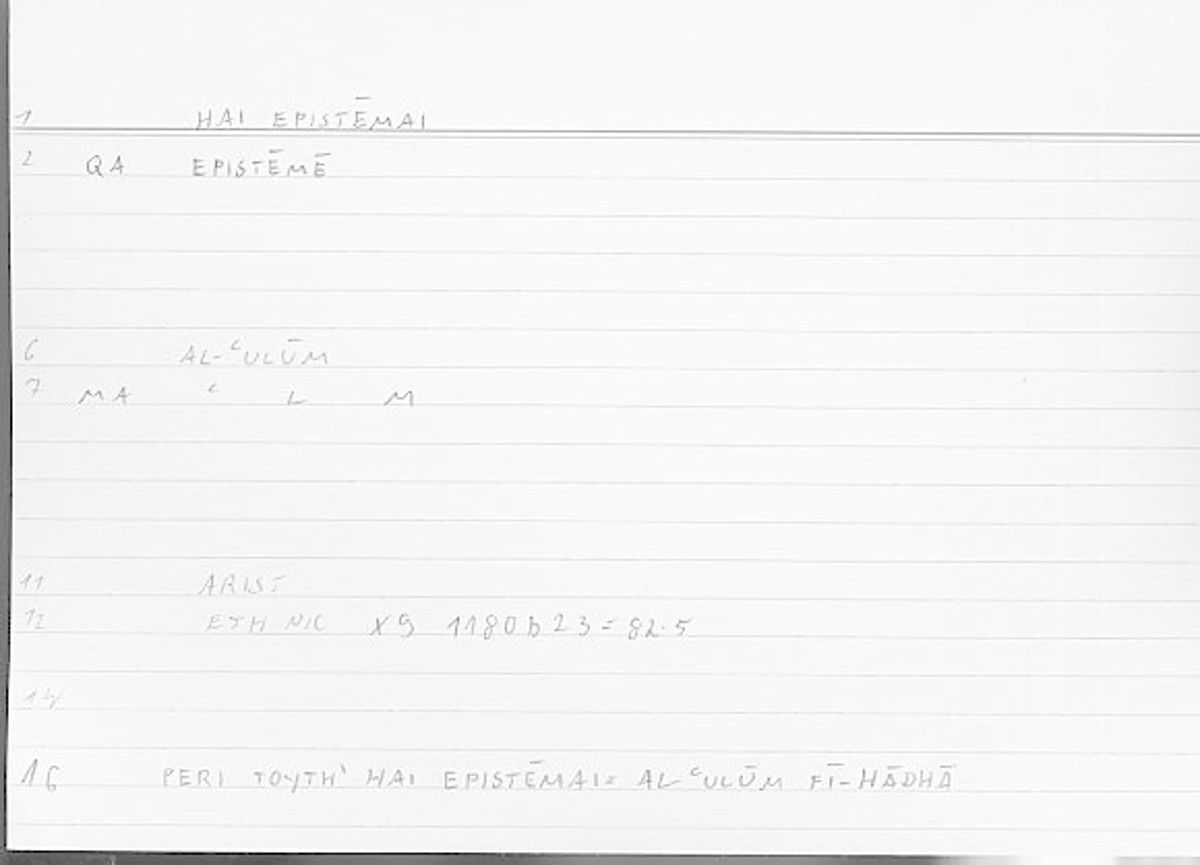 1 HAI EPISTĒMAI
2 QA EPISTĒMĒ
6 AL-ʿULŪM
7 MA ʿ L M
11 ARIST
12 ETH NIC X9 1180b23=82.5
14
16 PERI TOYTH' HAI EPISTĒMAI= AL ʿULŪM FĪ-HĀDHĀ